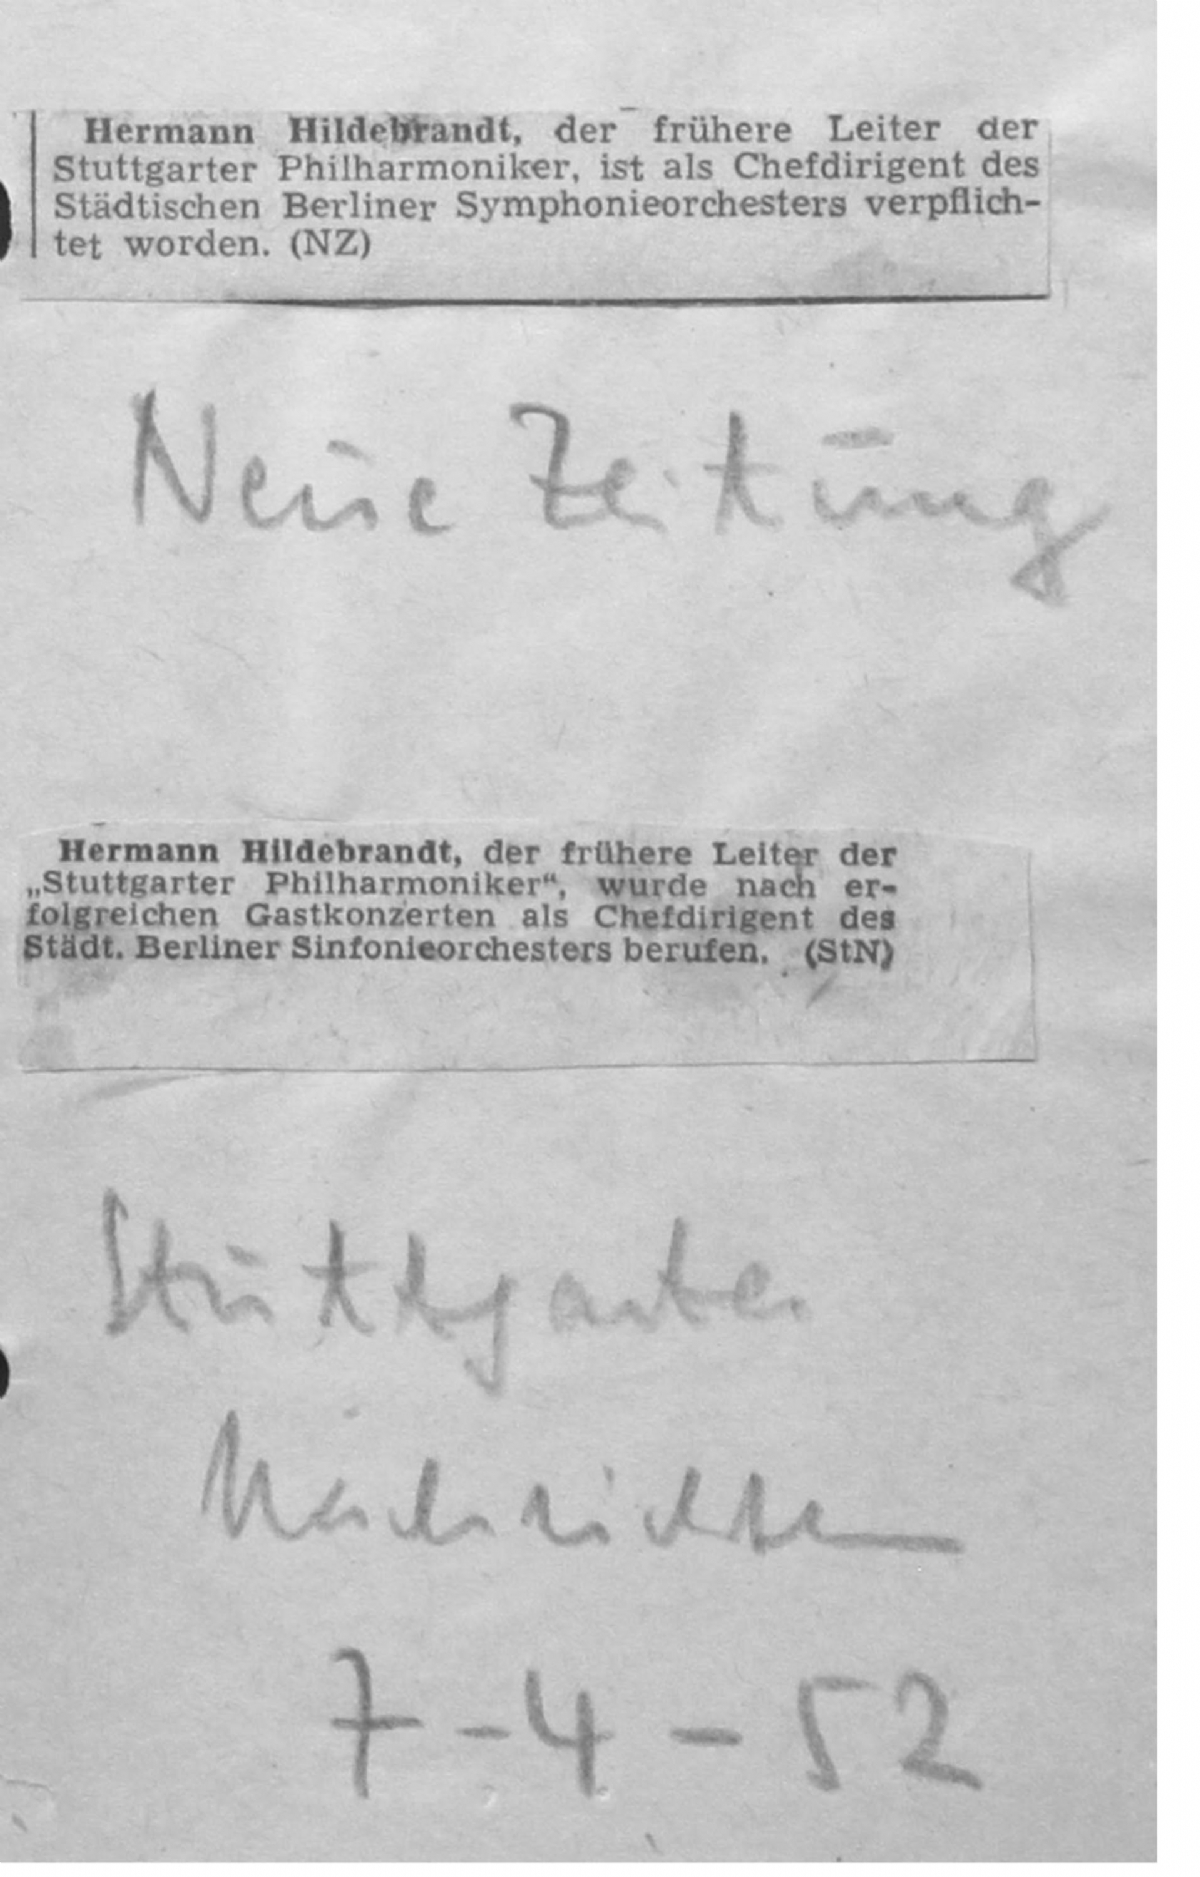 Hermann Hildebrandt, der frühere Leiter der
Stuttgarter Philharmoniker, ist als Chefdirigent des
Städtischen Berliner Symphonieorchesters verpflich-
tet worden. (NZ)
Neue Zeitung
Hermann Hildebrandt, der frühere Leiter der
„Stuttgarter Philharmoniker“, wurde nach er-
folgreichen Gastkonzerten als Chefdirigent des
Städt. Berliner Sinfonieorchesters berufen. (StN)
Stuttgarter
Nachrichten
7-4-52